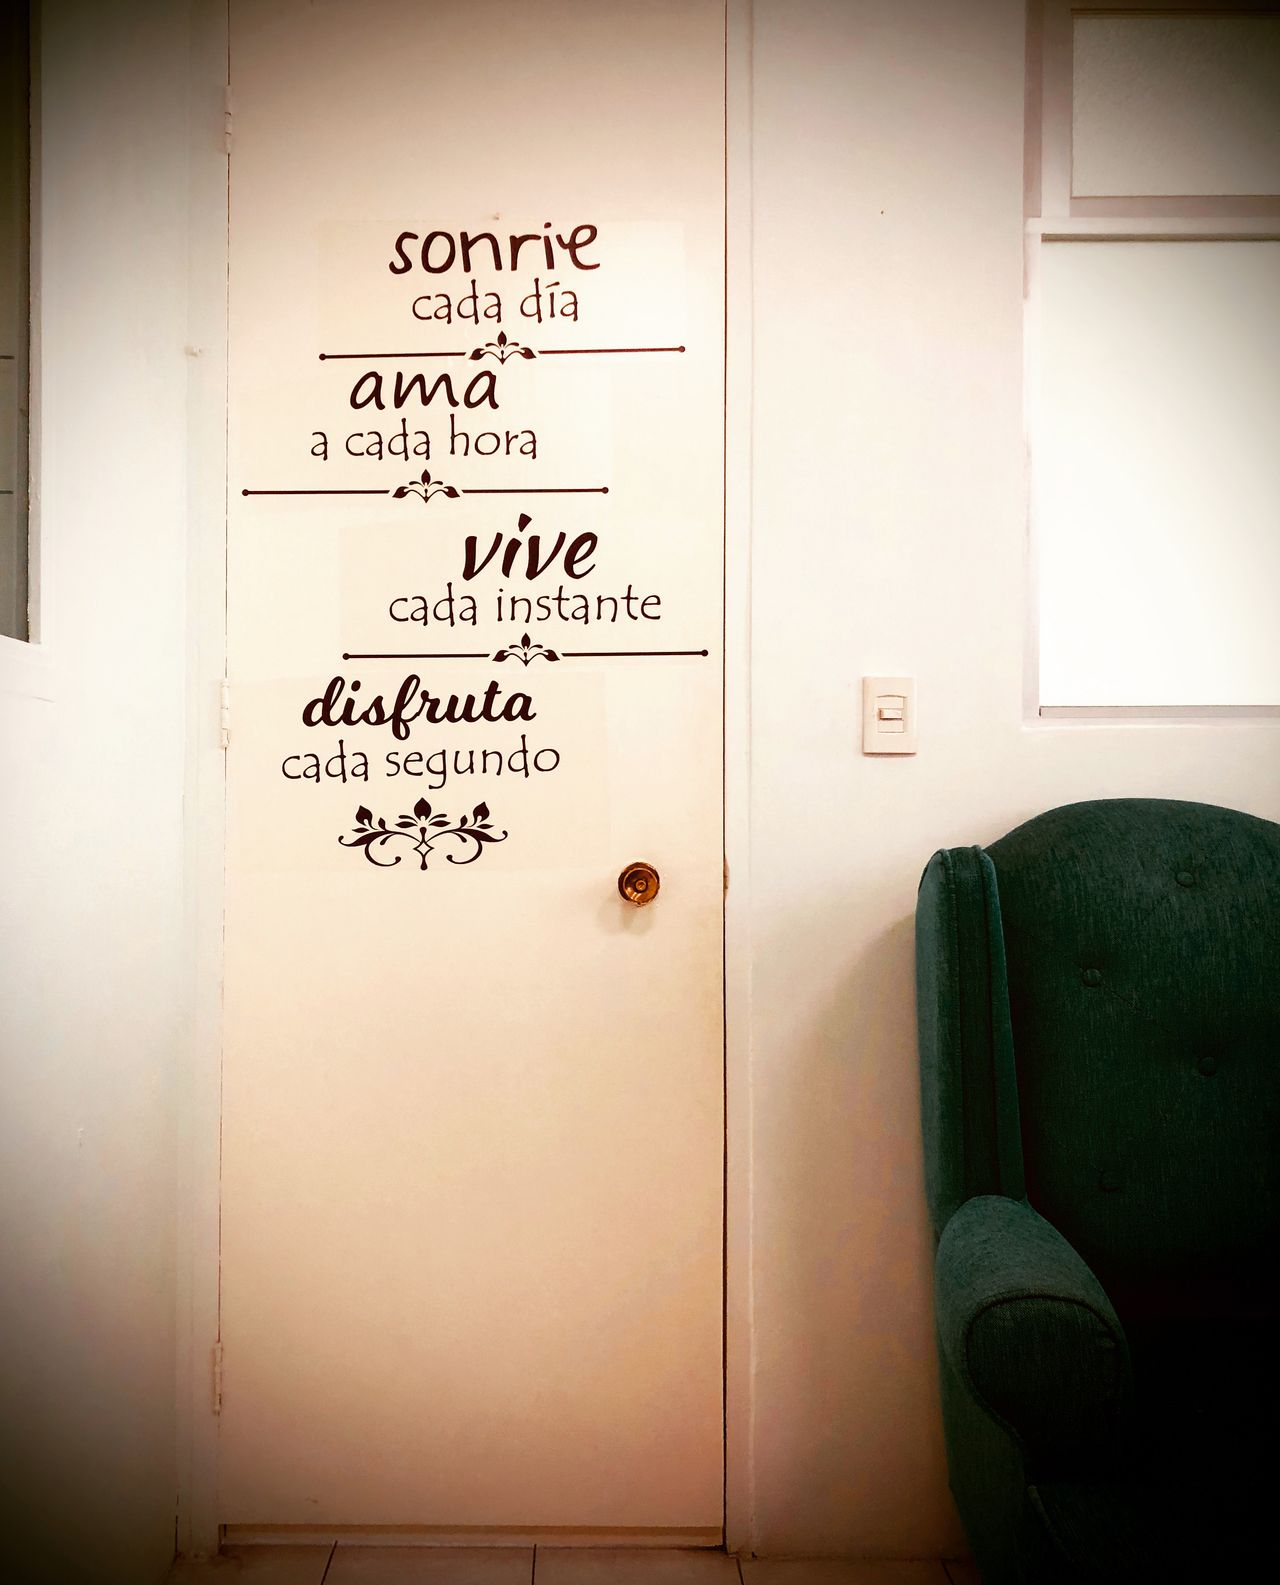 sonrie
cada día
ama
a cada hora
vive
cada instante
disfruta
cada segundo